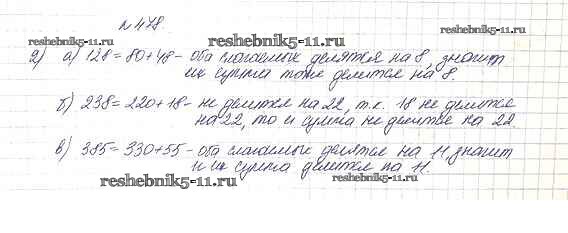 №478
reshebnik5-11.ru reshebnik5-11.ru
2) а) 128=80+48 - оба слагаемых делятся на 8, значит
их сумма тоже делится на 8.
б) 238=220+18 - не делится на 22, т.к. 18 не делится
на 22, то и сумма не делится на 22.
в) 385=330+55 - оба слагаемых делятся на 11, значит
и их сумма делится на 11.
reshebnik5-11.ru reshebnik5-11.ru